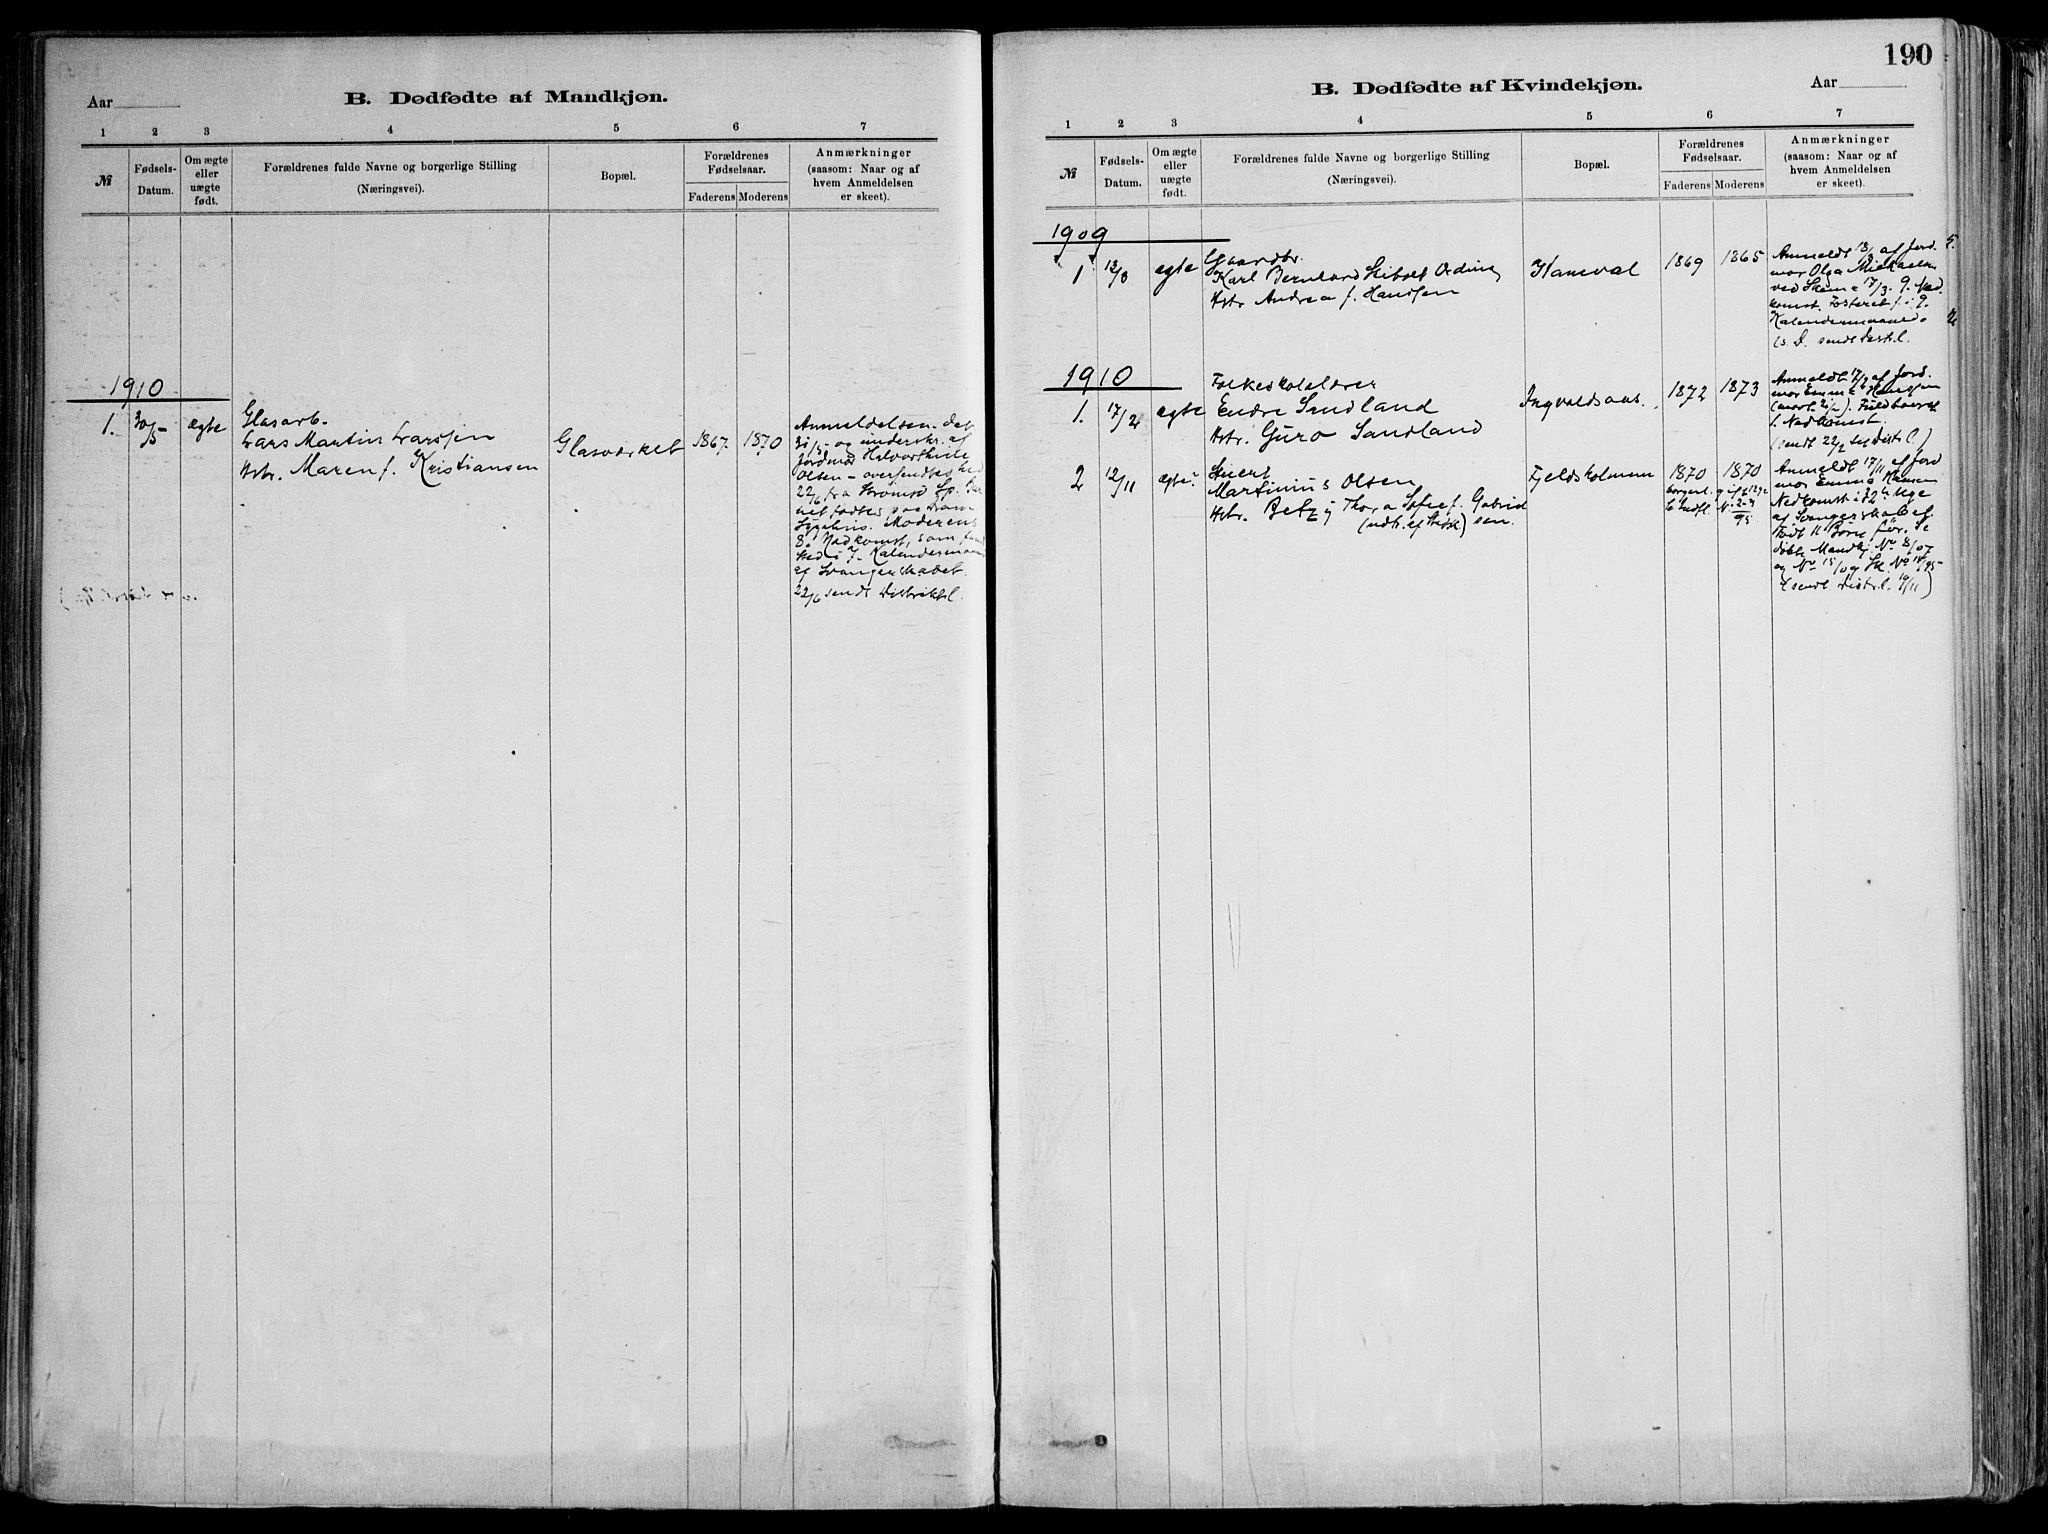 Aar
B. Dødfødte af Mandkjøn.
1 2 3 4 5 6 7
№
Fødsels-
Datum.
Om ægte
eller
uægte
født.
Forældrenes fulde Navne og borgerlige Stilling
(Næringsvei).
Bopæl.
Forældrenes
Fødselsaar.
Faderens Moderens
Anmærkninger
(saasom: Naar og af
hvem Anmeldelsen
er skeet).
1910
1. 30/5 ægte
Glasarb.
Lars Martin Larssen
Hstr. Maren f. Kristiansen
Glasværket
1867. 1870
Anmeldelsen det
31/5 og underskr. af
Jordmor
Olsen – oversendtes
22/6 fra Strømsø Sp.
net fødtes paa Dram
Sygehus. Moderens
8. Nedkomst, som fandt
sted i 7. Kalendermaaned
af Svangerskabet.
22/6 sendt Distriktsl.
190
B. Dødfødte af Kvindekjøn.
Aar
1 2 3 4 5 6 7
№
Fødsels-
Datum.
Om ægte
eller
uægte
født.
Forældrenes fulde Navne og borgerlige Stilling
(Næringsvei).
Bopæl.
Forældrenes
Fødselsaar.
Faderens Moderens
Anmærkninger
(saasom: Naar og af
hvem Anmeldelsen
er skeet).
1909
1 12/3 egte
Gaardbr.
Karl Bernhard Seibolt Ording
Hstr Andrea f. Hanssen
1869 1865
Anmeldt 13/3 af Jord.
mor Olga
ved Skema 17/3. 9. Ned.
komst. Fosteret f. i 9.
Kalendermaaned.
(s. D. sendt Distr.l.
1910
1. 17/2 egte
Folkeskolelærer
Endre Sandland
Hstr. Guro Sandland
Ingvaldsaas.
1872 1873
Anmeldt 17/2 af Jord.
mor Emma Hansen
(modt. 21/2). Fuldbaaret
1. Nedkomst.
(sendt 22/2 til Distr.l.)
2 12/11 egte
Stuert
Martinius Olsen
Hstr. Betzy Thora Sofie f. Gabriel
sen.
Fjeldsholmen
1870 1870
Anmeldt 17/11 af Jord
mor Emma Hansen
Nedkomst i 32te Uge
af Svangerskabet.
Født 11 Børn før. Se
døbte Mandkj. No 8/07
og No 15/09
(sendt Distr.l. 19/11)